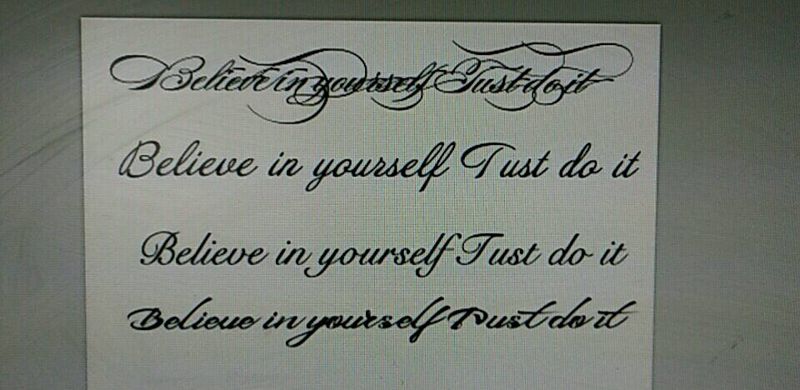 Believe in yourself Tust do it
Believe in yourself Tust do it
Believe in yourself Tust do it
Believe in yourself Tust do it